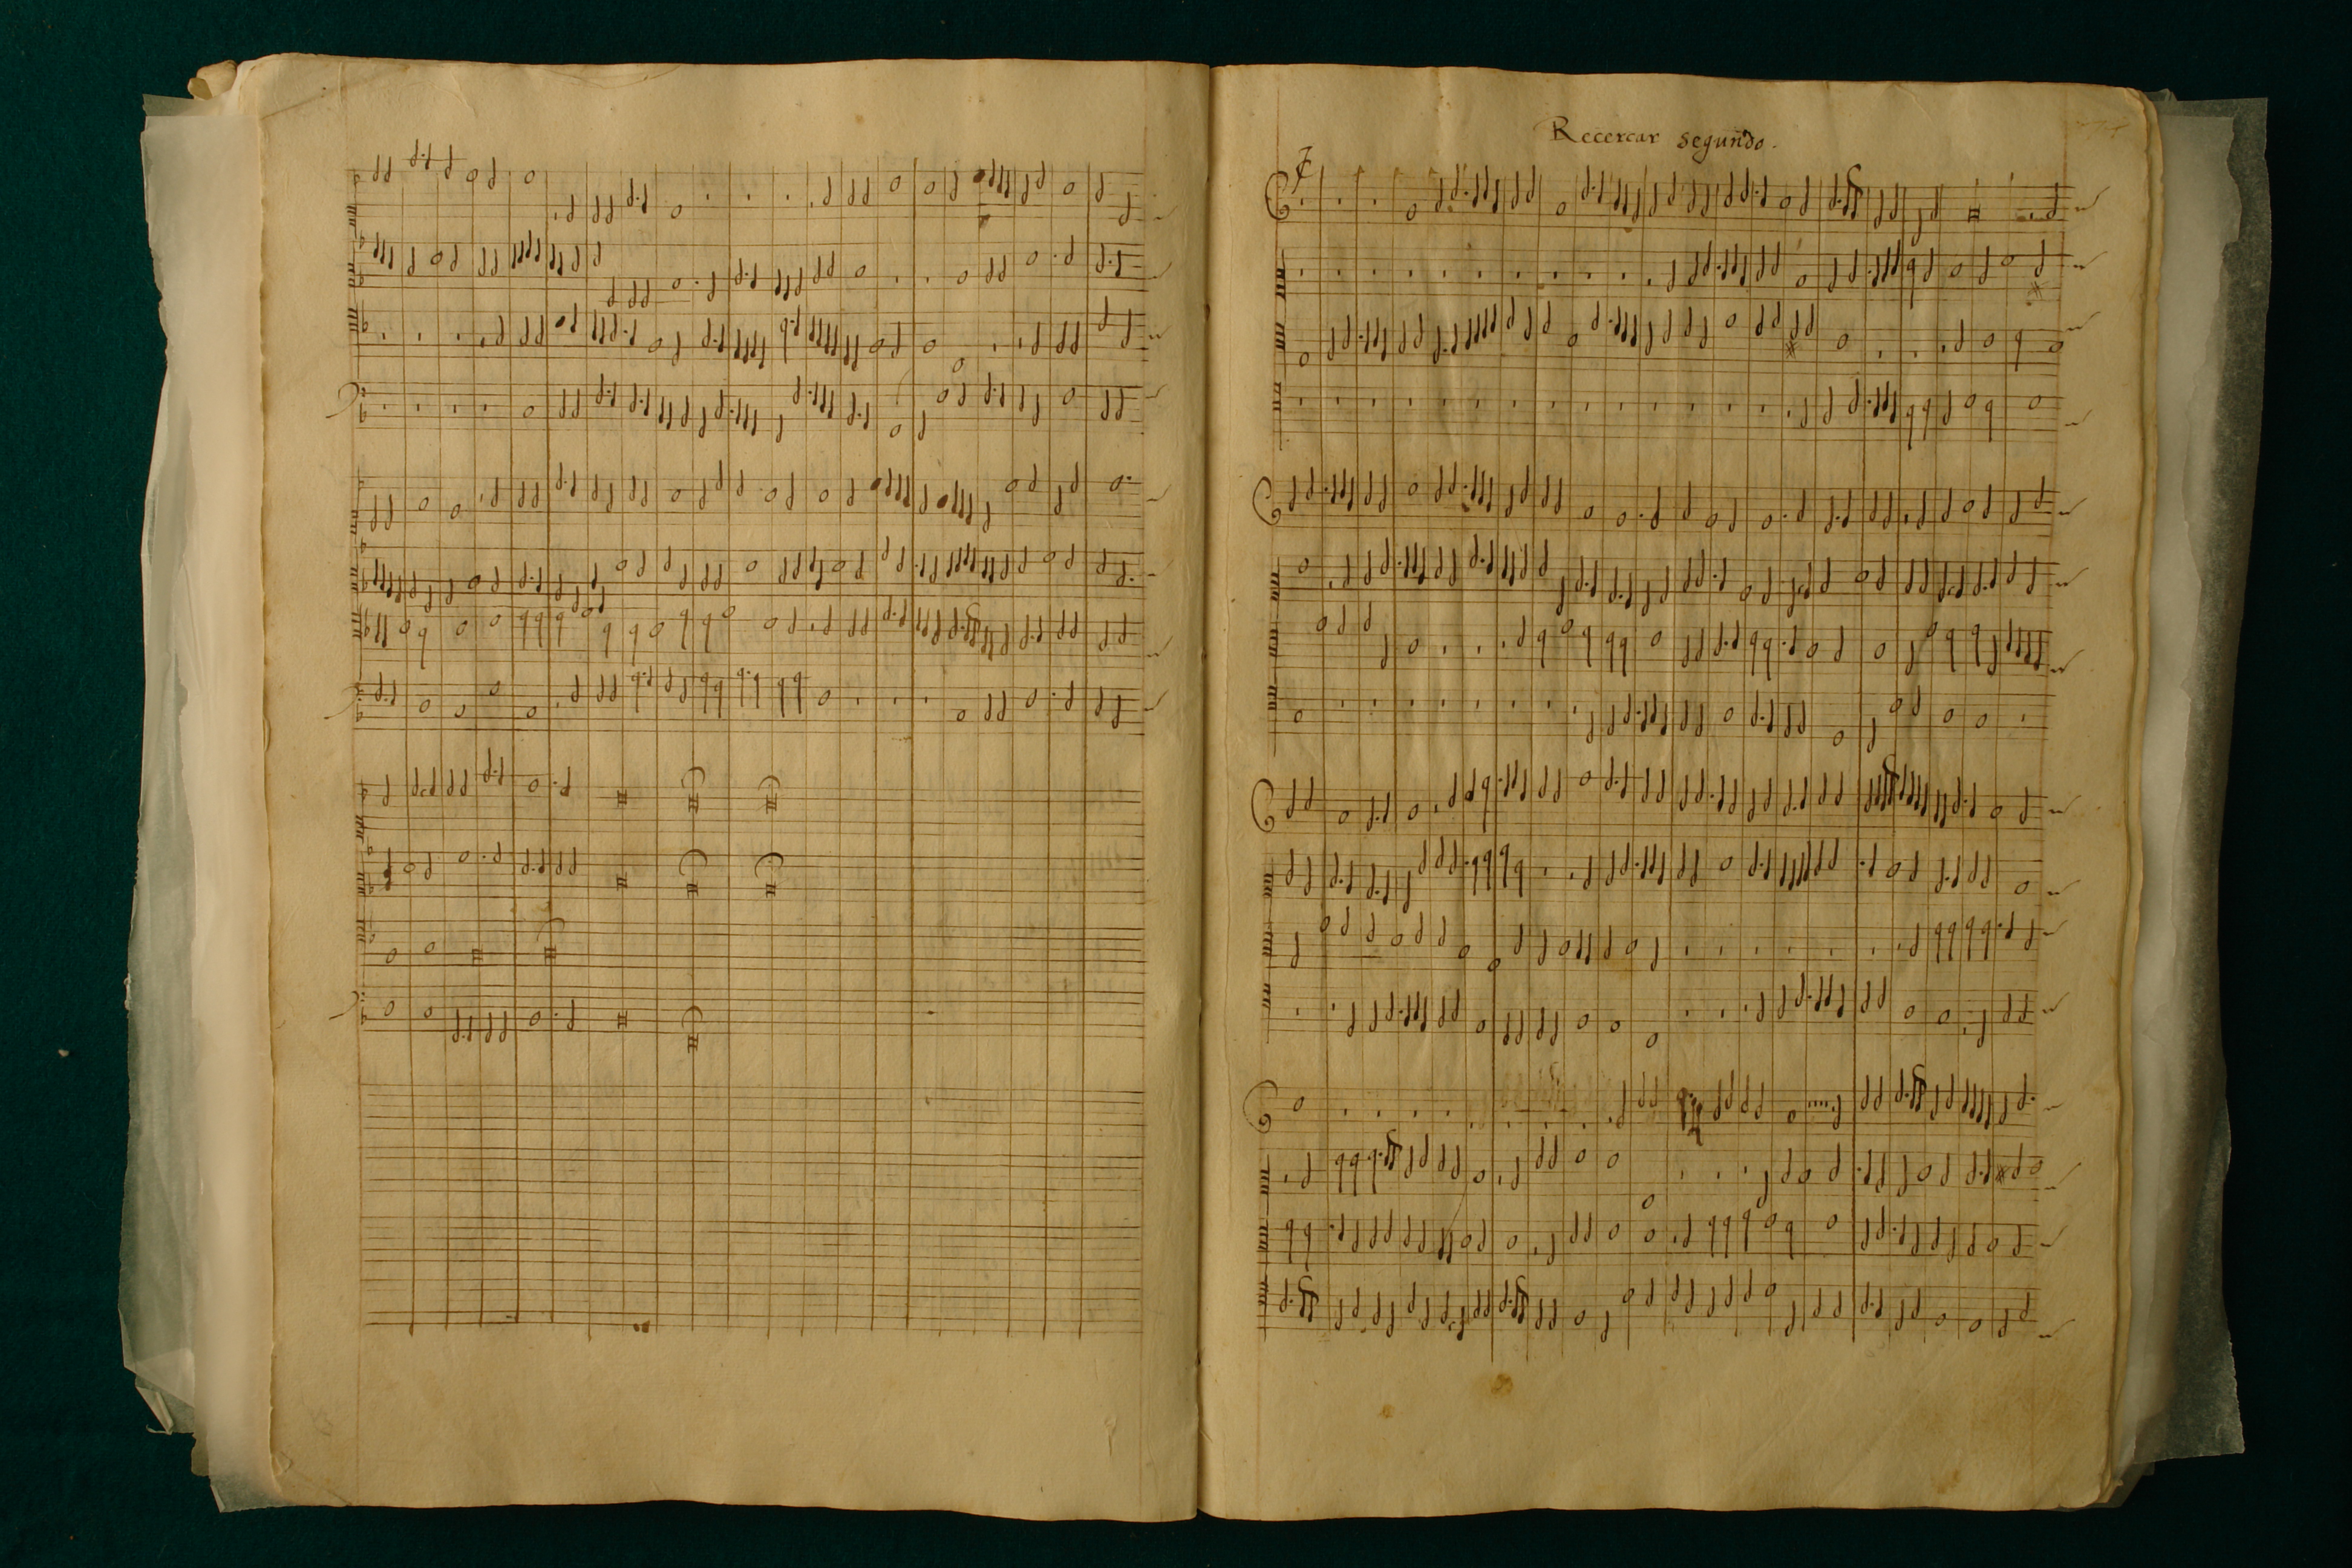 Recercar segundo.